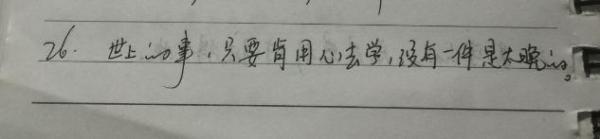 26. 世上的事,只要肯用心去学,没有一件是太晚的。